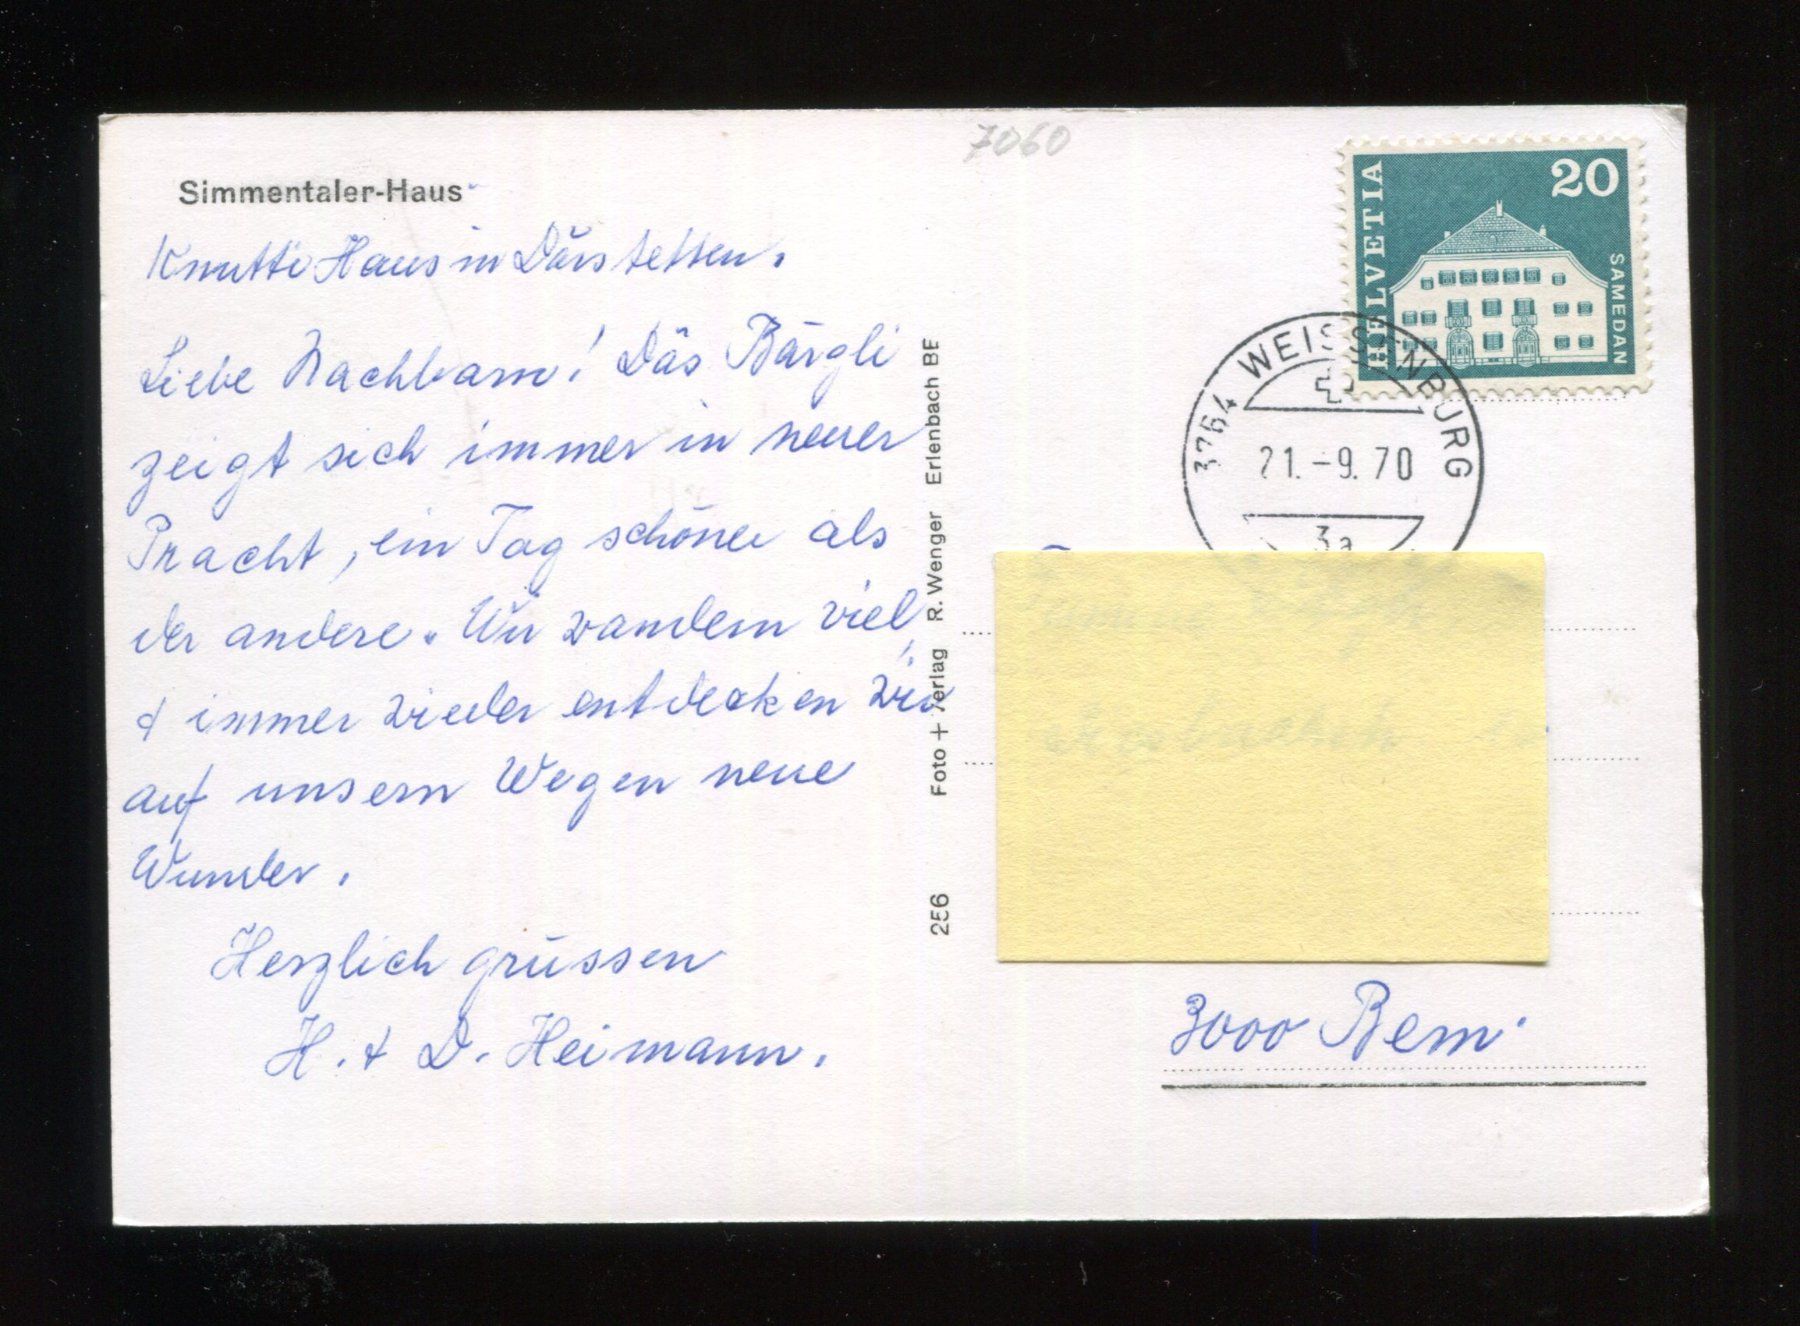 7060
Simmentaler-Haus
Knutti Haus in Därstetten.
Liebe Nachbarn! Däs Bärgli
zeigt sich immer in neuer
Pracht, ein Tag schöner als
der andere. Wir wandern viel,
& immer wieder entdecken wir
auf unsern Wegen neue
Wunder.
Herzlich grüssen
H. & D. Heimann.
256 Foto + Verlag R. Wenger Erlenbach BE
HELVETIA
20
SAMEDAN
3764 WEISSENBURG
21.-9.70
3a
3000 Bern